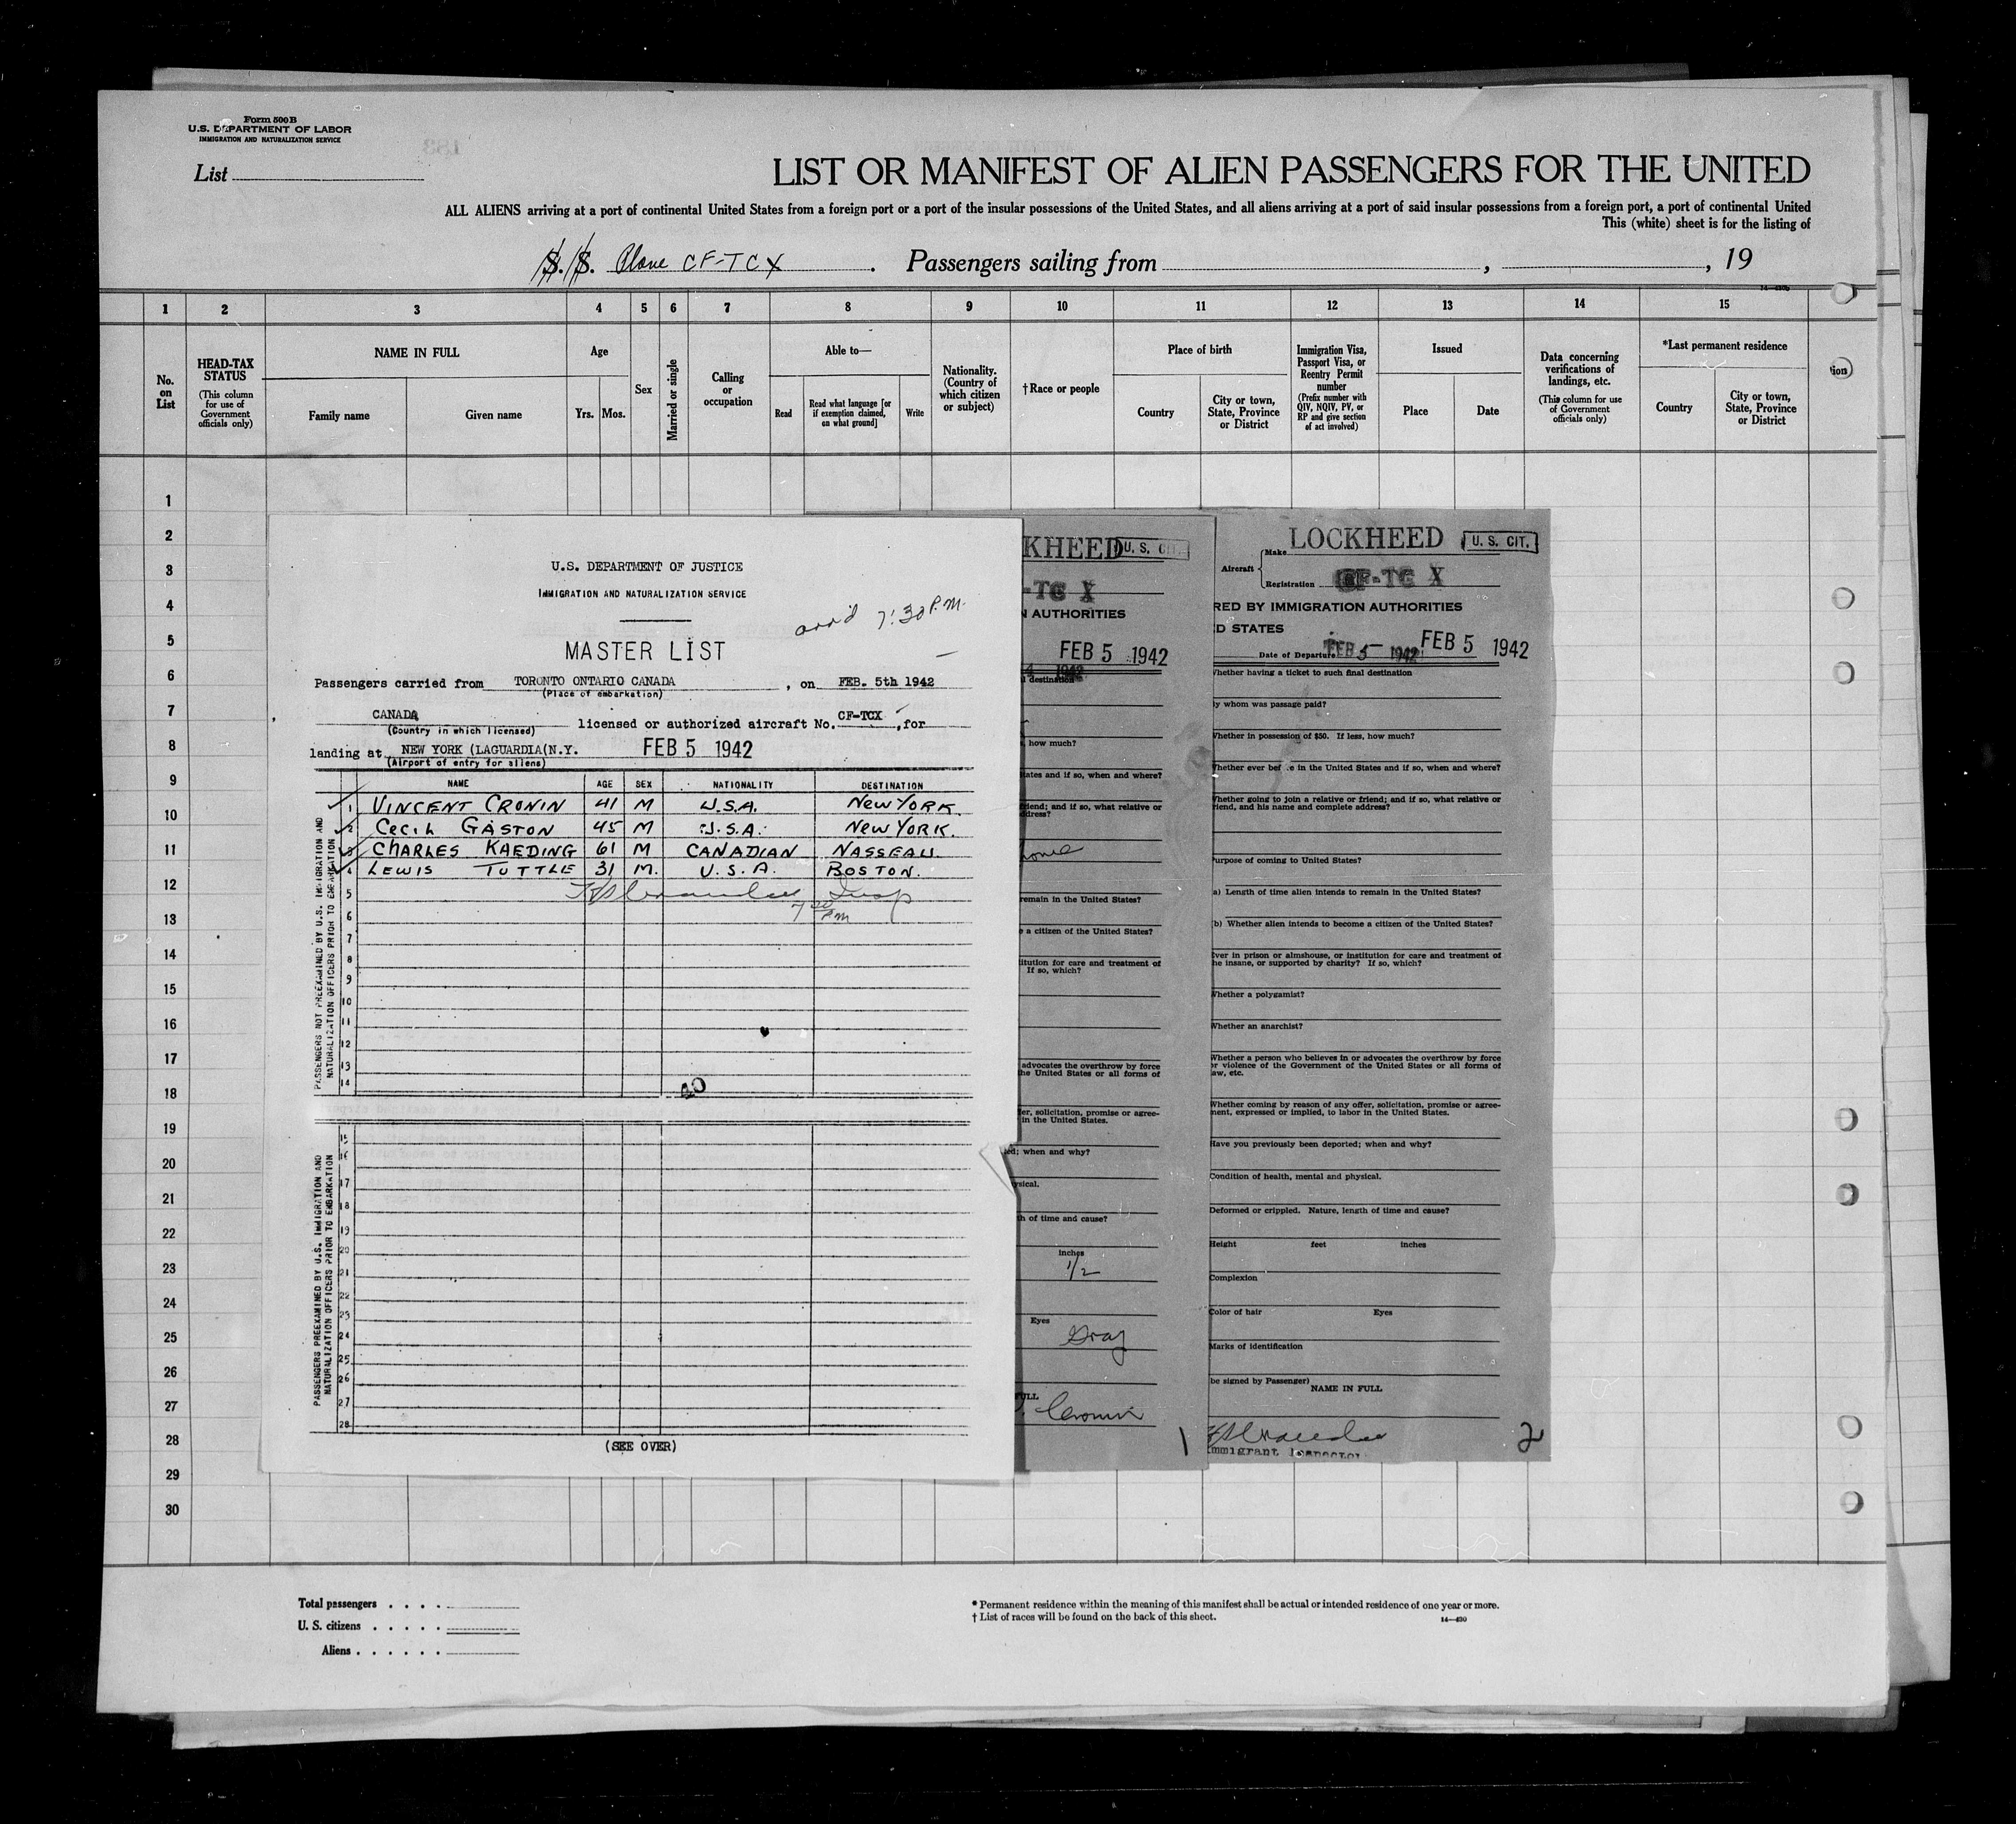 Form 500B
U.S. DEPARTMENT OF LABOR
IMMIGRATION AND NATURALIZATION SERVICE
List
183
LIST OR MANIFEST OF ALIEN PASSENGERS FOR THE UNITED
ALL ALIENS arriving at a port of continental United States from a foreign port or a port of the insular possessions of the United States, and all aliens arriving at a port of said insular possessions from a foreign port, a port of continental United
This (white) sheet is for the listing of
S. S. Plane CF-TCX . Passengers sailing from , , 19
1 2 3 4 5 6 7 8 9 10 11 12 13 14 15
No. on List
HEAD-TAX STATUS
(This column for use of Government officials only)
NAME IN FULL
Family name Given name
Age
Yrs. Mos.
Sex
Married or single
Calling or occupation
Able to—
Read
Read what language [or if exemption claimed, on what ground]
Write
Nationality. (Country of which citizen or subject)
†Race or people
Place of birth
Country
City or town, State, Province or District
Immigration Visa, Passport Visa, or Reentry Permit number
(Prefix number with QIV, NQIV, PV, or RP and give section of act involved)
Issued
Place Date
Data concerning verifications of landings, etc.
(This column for use of Government officials only)
*Last permanent residence
Country
City or town, State, Province or District
tion
1
2
3
4
5
6
7
8
9
10
11
12
13
14
15
16
17
18
19
20
21
22
23
24
25
26
27
28
29
30
U.S. DEPARTMENT OF JUSTICE
IMMIGRATION AND NATURALIZATION SERVICE
arr'd 7:30 P.M.
MASTER LIST
Passengers carried from TORONTO ONTARIO CANADA , on FEB. 5th 1942
(Place of embarkation)
CANADA licensed or authorized aircraft No. CF-TCX , for
(Country in which licensed)
landing at NEW YORK (LAGUARDIA(N.Y. FEB 5 1942
(Airport of entry for aliens)
NAME AGE SEX NATIONALITY DESTINATION
1 VINCENT CRONIN 41 M U.S.A. NEW YORK.
2 CECIL GASTON 45 M U.S.A. NEW YORK.
3 CHARLES KAEDING 61 M CANADIAN NASSEAU.
4 LEWIS TUTTLE 31 M. U.S.A. BOSTON.
5 Insp
6 7 30 PM
7
8
9
10
11
12
13
14
PASSENGERS NOT PREEXAMINED BY U.S. IMMIGRATION AND
NATURALIZATION OFFICERS PRIOR TO EMBARKATION
15
16
17
18
19
20
21
22
23
24
25
26
27
28
PASSENGERS PREEXAMINED BY U.S. IMMIGRATION AND
NATURALIZATION OFFICERS PRIOR TO EMBARKATION
(SEE OVER)
KHEED U. S. CIT.
-TC X
N AUTHORITIES
FEB 5 1942
1942
l destination
, how much?
tates and if so, when and where?
riend; and if so, what relative or
ddress?
home
remain in the United States?
e a citizen of the United States?
titution for care and treatment of
If so, which?
advocates the overthrow by force
he United States or all forms of
fer, solicitation, promise or agree-
in the United States.
ted; when and why?
ysical.
th of time and cause?
inches
1/2
Eyes
Gray
FULL
Cronin
1
Aircraft
Make LOCKHEED U. S. CIT.
Registration CF-TC X
RED BY IMMIGRATION AUTHORITIES
D STATES
Date of Departure FEB 5 1942 FEB 5 1942
Whether having a ticket to such final destination
By whom was passage paid?
Whether in possession of $50. If less, how much?
Whether ever before in the United States and if so, when and where?
Whether going to join a relative or friend; and if so, what relative or
riend, and his name and complete address?
Purpose of coming to United States?
a) Length of time alien intends to remain in the United States?
(b) Whether alien intends to become a citizen of the United States?
Ever in prison or almshouse, or institution for care and treatment of
he insane, or supported by charity? If so, which?
Whether a polygamist?
Whether an anarchist?
Whether a person who believes in or advocates the overthrow by force
or violence of the Government of the United States or all forms of
law, etc.
Whether coming by reason of any offer, solicitation, promise or agree-
ment, expressed or implied, to labor in the United States.
Have you previously been deported; when and why?
Condition of health, mental and physical.
Deformed or crippled. Nature, length of time and cause?
Height feet inches
Complexion
Color of hair Eyes
Marks of identification
be signed by Passenger)
NAME IN FULL
Immigrant Inspector
2
Total passengers . . . .
U. S. citizens . . . . .
Aliens . . . . . .
* Permanent residence within the meaning of this manifest shall be actual or intended residence of one year or more.
† List of races will be found on the back of this sheet.
14—430